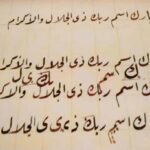 ارك اسم ربك ذى الجلال والاكرام
اسم ربك ذى الجلال والاكرا
اسم ربك ذى الجلال والاكرا
اسم ربك ذى الجلال